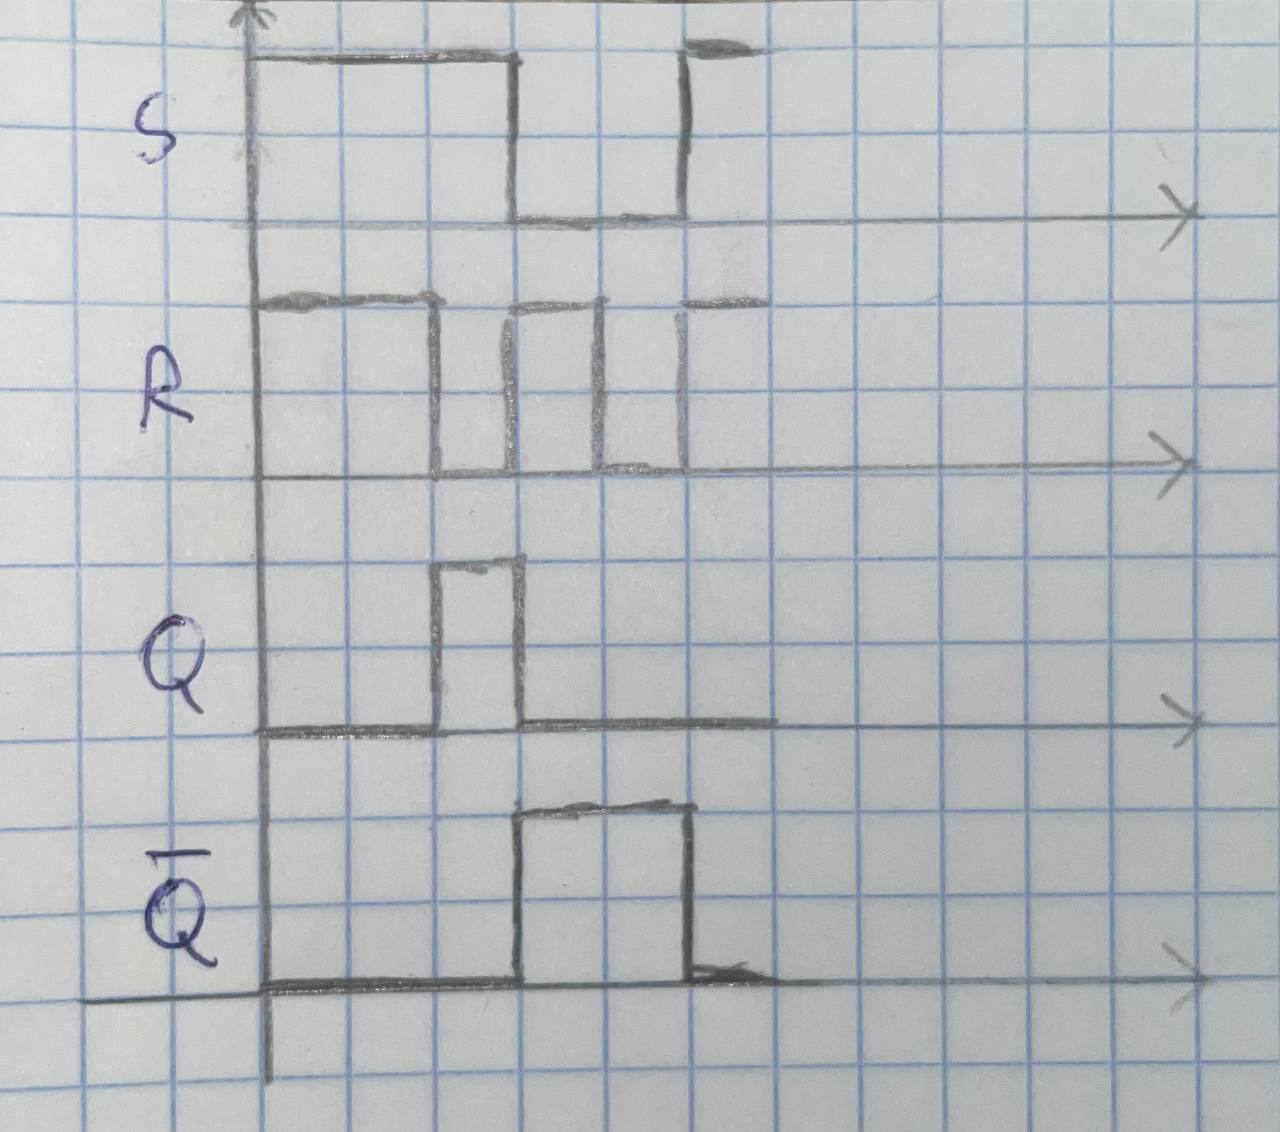 S
R
Q
Q̅